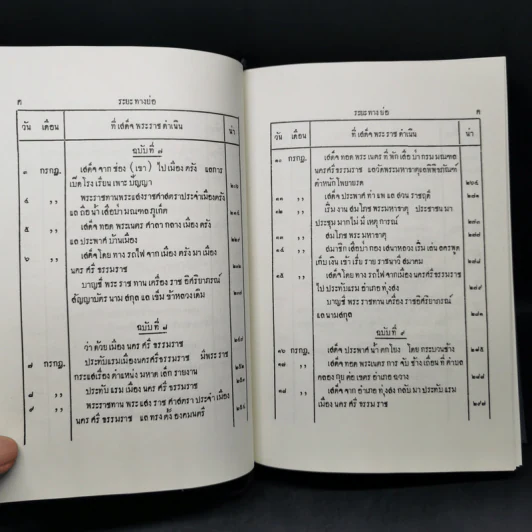 ค
ระยะทางย่อ
วัน เดือน ที่เสด็จพระราชดำเนิน น่า
ฉบับที่ ๗
๓ กรกฎ เสด็จจากช่อง (เขา) ไปเมืองตรัง แลการ
เปิดโรงเรียนเพาะปัญญา
๔ ,, พระราชทานพระแสงราชศาสตราประจำเมืองตรัง
แลถือน้ำเสือป่ามณฑลภูเก็ต
๕ ,, เสด็จทอดพระเนตรศาลากลางเมืองตรัง
แลประพาศบ้านเมือง
๖ ,, เสด็จโดยทางรถไฟจากเมืองตรังมาเมือง
นครศรีธรรมราช
บาญชีพระราชทานเครื่องราชอิศริยาภรณ์
สัญญาบัตรนามสกุลแลเข็มข้าหลวงเดิม
ฉบับที่ ๘
ว่าด้วยเมืองนครศรีธรรมราช
๗ กรกฎ ประทับแรมเมืองนครศรีธรรมราช มีพระ
กระแสเรื่องตำแหน่งมหาดเล็กรายงาน
๘ ,, ประทับแรมเมืองนครศรีธรรมราช
๙ ,, พระราชทานพระแสงราชศาสตราประจำเมือง
นครศรีธรรมราช แลทรงตั้งองคมนตรี
ระยะทางย่อ
ฅ
วัน เดือน ที่เสด็จพระราชดำเนิน น่า
๑๐ กรกฎ เสด็จทอดพระเนตรที่พักเสือป่ากรมมณฑล
นครศรีธรรมราช แลวัดพระมหาธาตุแลพิพิธภัณฑ์
ตำหนักไพยารถ
๑๑ ,, เสด็จประพาศท่าแพแลสวนราชฤดี
๑๒ ,, เริ่มงานสมโภชพระมหาธาตุ ประชาชนมา
ประชุมมากไม่มีเหตุการณ์
๑๓ ,, สมโภชพระมหาธาตุ
๑๔ ,, สมาชิกเสือป่ากองเสนาหลวงเริ่มเล่นลครพูด
เก็บเงินเข้าเรี่ยรายราชนาวีสมาคม
๑๕ ,, เสด็จโดยทางรถไฟจากเมืองนครศรีธรรมราช
ไปประทับแรมอำเภอทุ่งสง
บาญชีพระราชทานเครื่องราชอิศริยาภรณ์
แลนามสกุล
ฉบับที่ ๙
๑๖ กรกฎ เสด็จประพาศน้ำตกโยง โดยกระบวนช้าง
๑๗ ,, เสด็จทอดพระเนตรการจับช้างเถื่อนที่ตำบล
คลองกุยต่อเขตรอำเภอฉวาง
๑๘ ,, เสด็จจากอำเภอทุ่งสงกลับมาประทับแรม
เมืองนครศรีธรรมราช